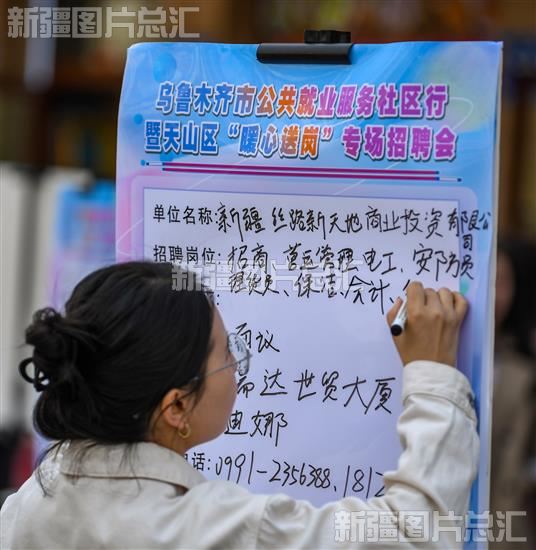 新疆图片总汇
新疆图片总汇
乌鲁木齐市公共就业服务社区行
暨天山区“暖心送岗”专场招聘会
单位名称:新疆丝路新天地商业投资有限公司
招聘岗位:招商、营运管理、电工、安防员
新疆图片总汇
理货员、保洁、会计、
面议
达世贸大厦
迪娜
话:0991-2356388、1812
新疆图片总汇